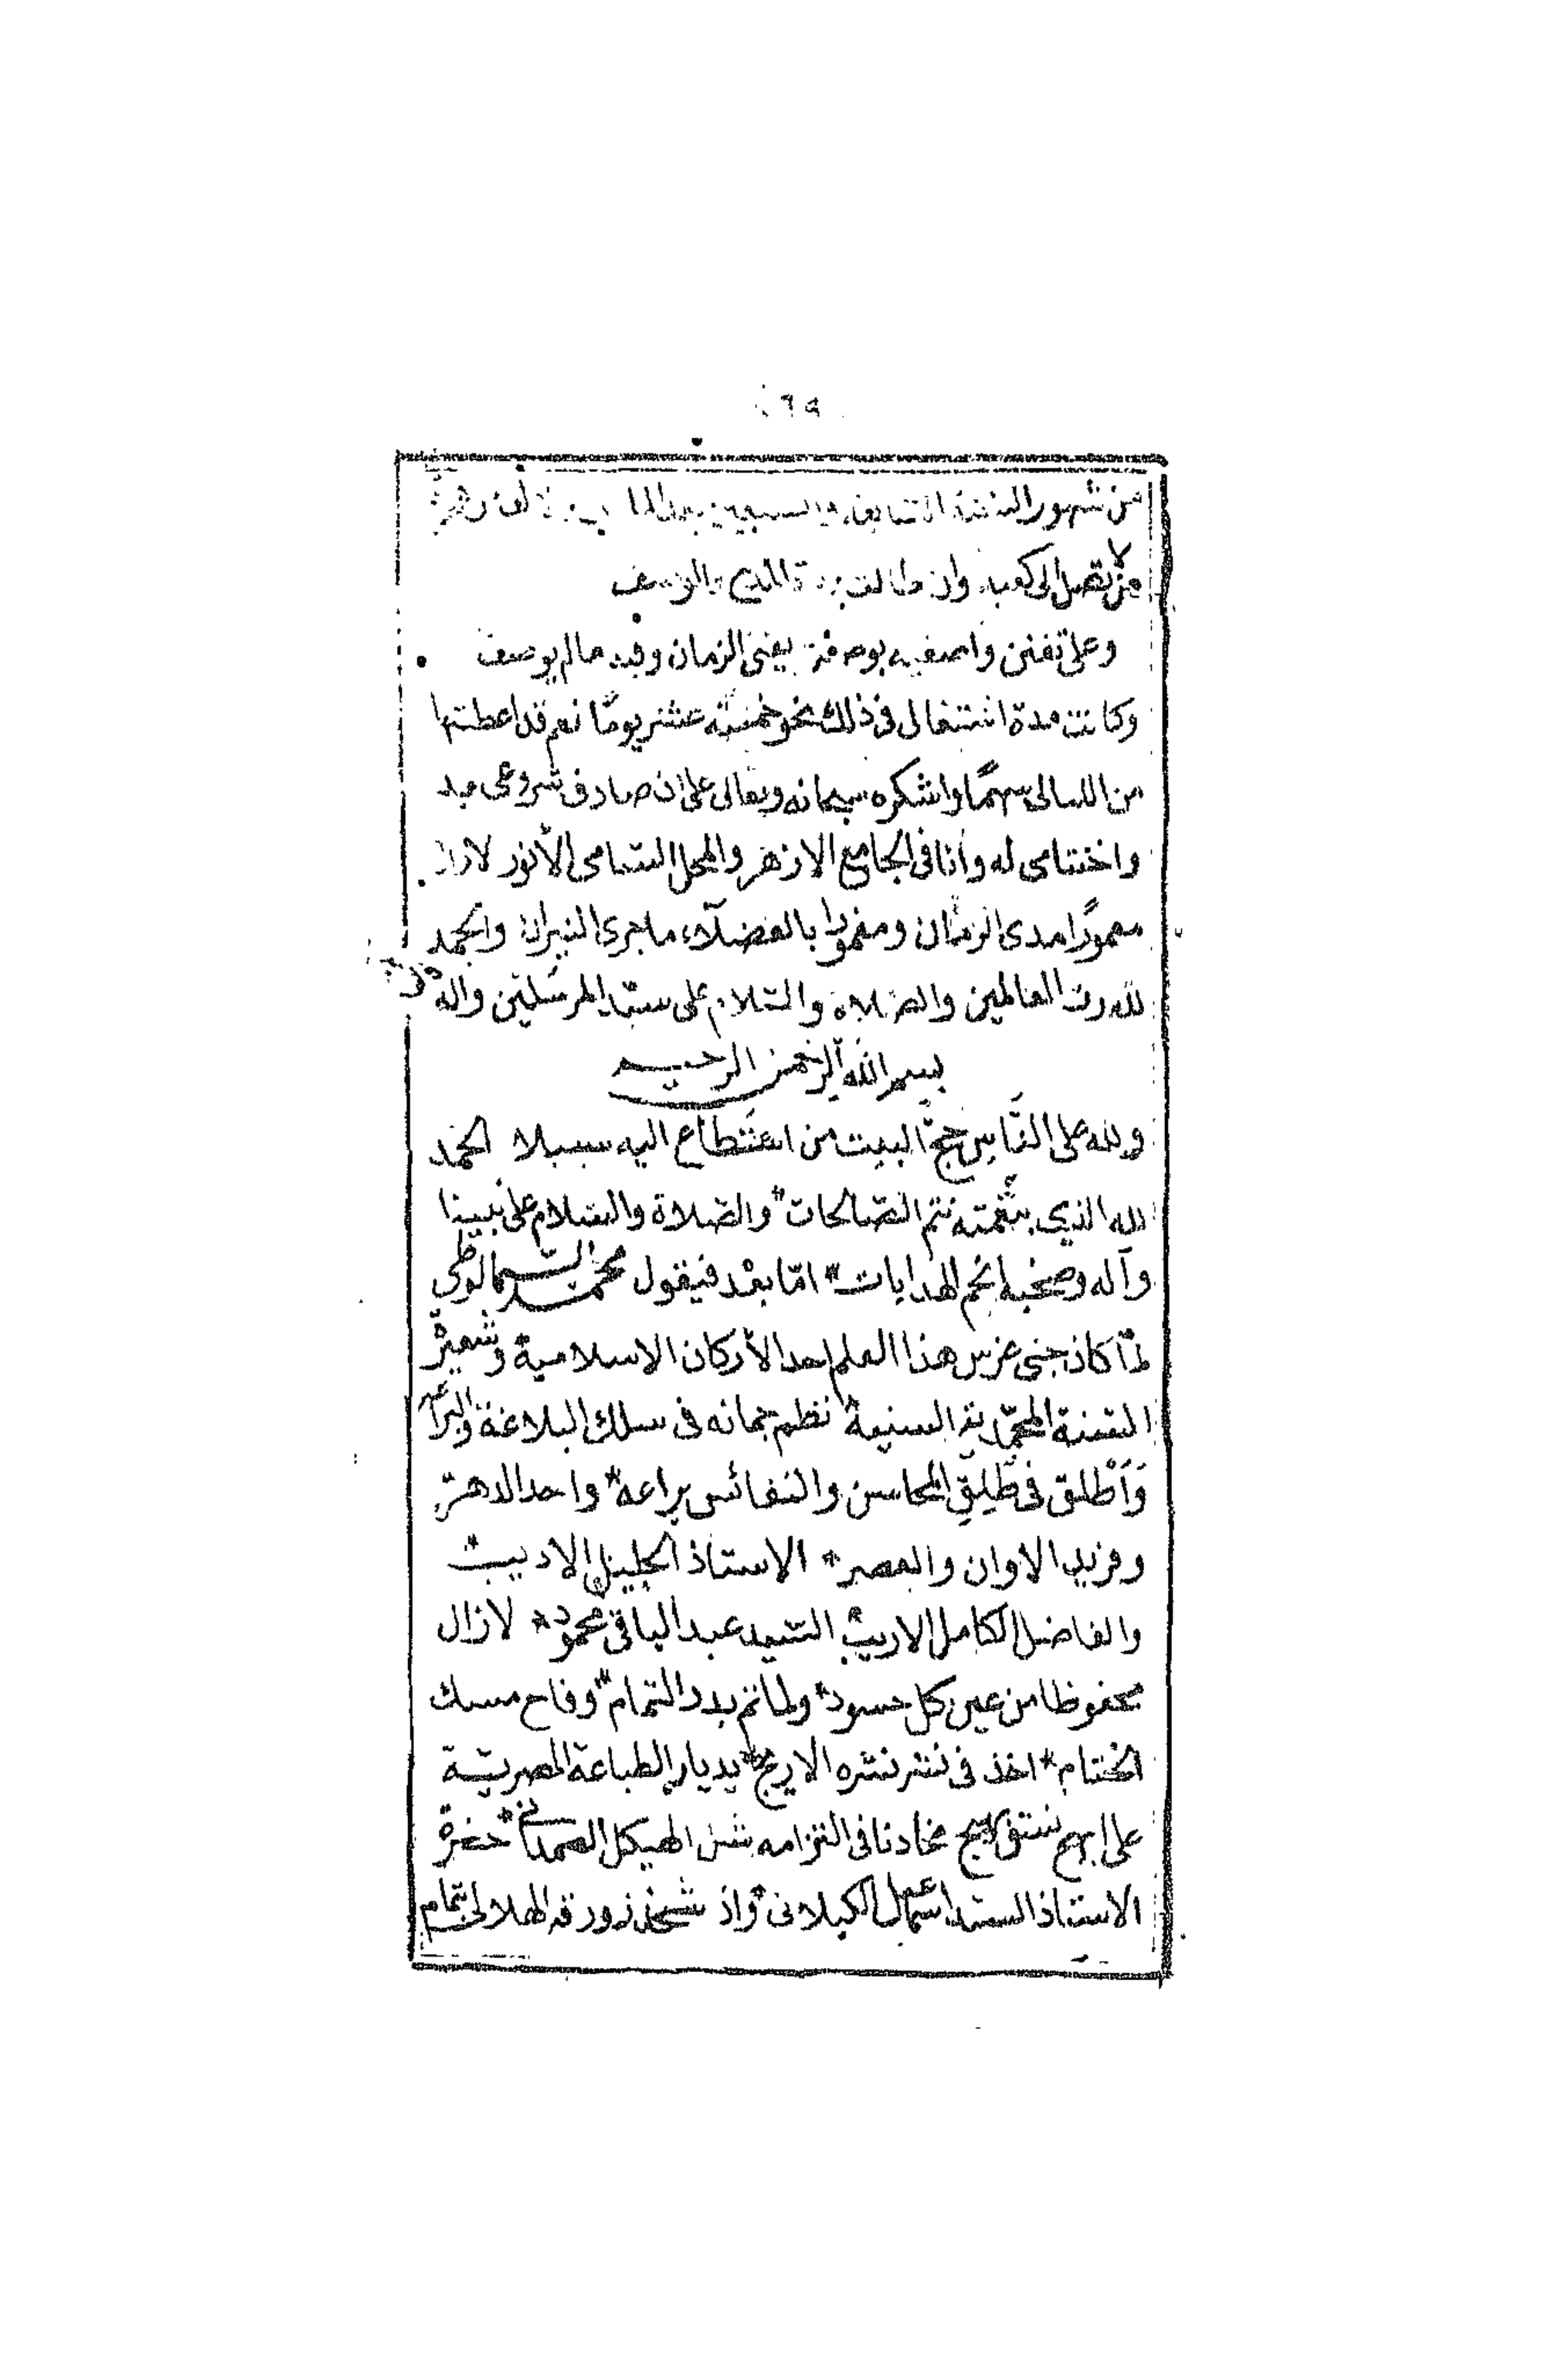 ٦٩
من شهور السنة السابعة والسبعين بعد الما
من لا تصل الى كعبه وان طالت المدح والوصف
وعلى تفنن واصفيه بوصفه يفنى الزمان وفيه مالم يوصف
وكانت مدة اشتغالى فى ذلك نحو خمسة عشر يومًا نعم قد اعطتها
من الليالى سهمًا واشكره سبحانه وتعالى على ان صادف شروعى فيه
واختتامى له وأنا فى الجامع الازهر والمحل السامى الأنور لازال
معمورًا مدى الزمان ومغمورا بالفضلآء ماجرى النيران والحمد
لله رب العالمين والصلاة والسلام على سيد المرسلين واله
بسم الله الرحمن الرحيم
ولله على النَّاسِ حِجُّ البيت من استَطَاع اليه سبيلا الحمد
لله الذي بنعمته تتم الصّالحات* والصّلاة والسلام على نبينا
وآله وصحبه انجم الهدايات* امّا بعْد فيقول محمد السمالوطى
لمّا كان جنى غرس هذا العلم احد الأركان الاسلامية وشعيرة
السنة المحمّدية السنية* نظم جمانه فى سلك البلاغة والبراعه
وَأَطْلق فى طَلِقِ المحاسن والنفائس يراعه* واحد الدهر*
وفريد الاوان والعصر* الاستاذ الجليل الاديب*
والفاضل الكامل الاريب* السّيد عبد الباقى محمود* لازال
محفوظا من عين كل حسود* ولما تم بدر التمام* وفاح مسك
الختام* اخذ فى نشر نشره الاريج* بديار الطباعة المصريّة
على ابهج نسق بهيج مخادنا فى التزامه شبل الهيكل الصمدانى* حضرة
الاستاذ السيد اسماعيل الكيلانى* واذ شحن زورقه الهلالى بتمام